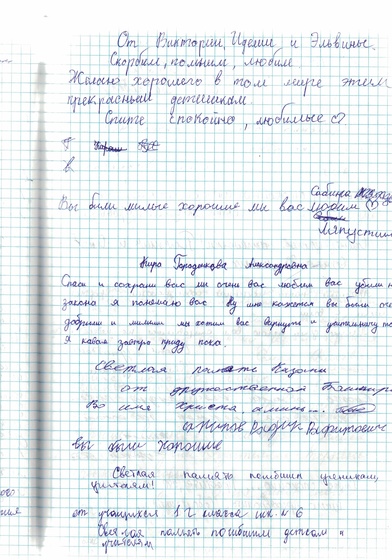 От Виктории, Идели и Эльвины.
Скорбим, помним, любим
Желаю хорошего в том мире этим
прекрасным детишкам
Спите спокойно, любимые
Г
в
Сабина
Вы были милые хорошие мы вас любим
Ляпустин
Кира Городникова Александровна
Спаси и сохрани вас мы очень вас любим вас убили н
я понимаю вас Ну мне кажется вы были оче
добрыми и милыми мы хотим вас вернуть и
Я кавая завтра приду пока.
Светлая память Казани
от дружественной Башкир
Во имя Христа, аминь...
вы были хорошие
Светлая память погибшим ученикам,
учителям!
от учащихся 1 Г класса шк. № 6
Светлая память погибшим детям и
учителям